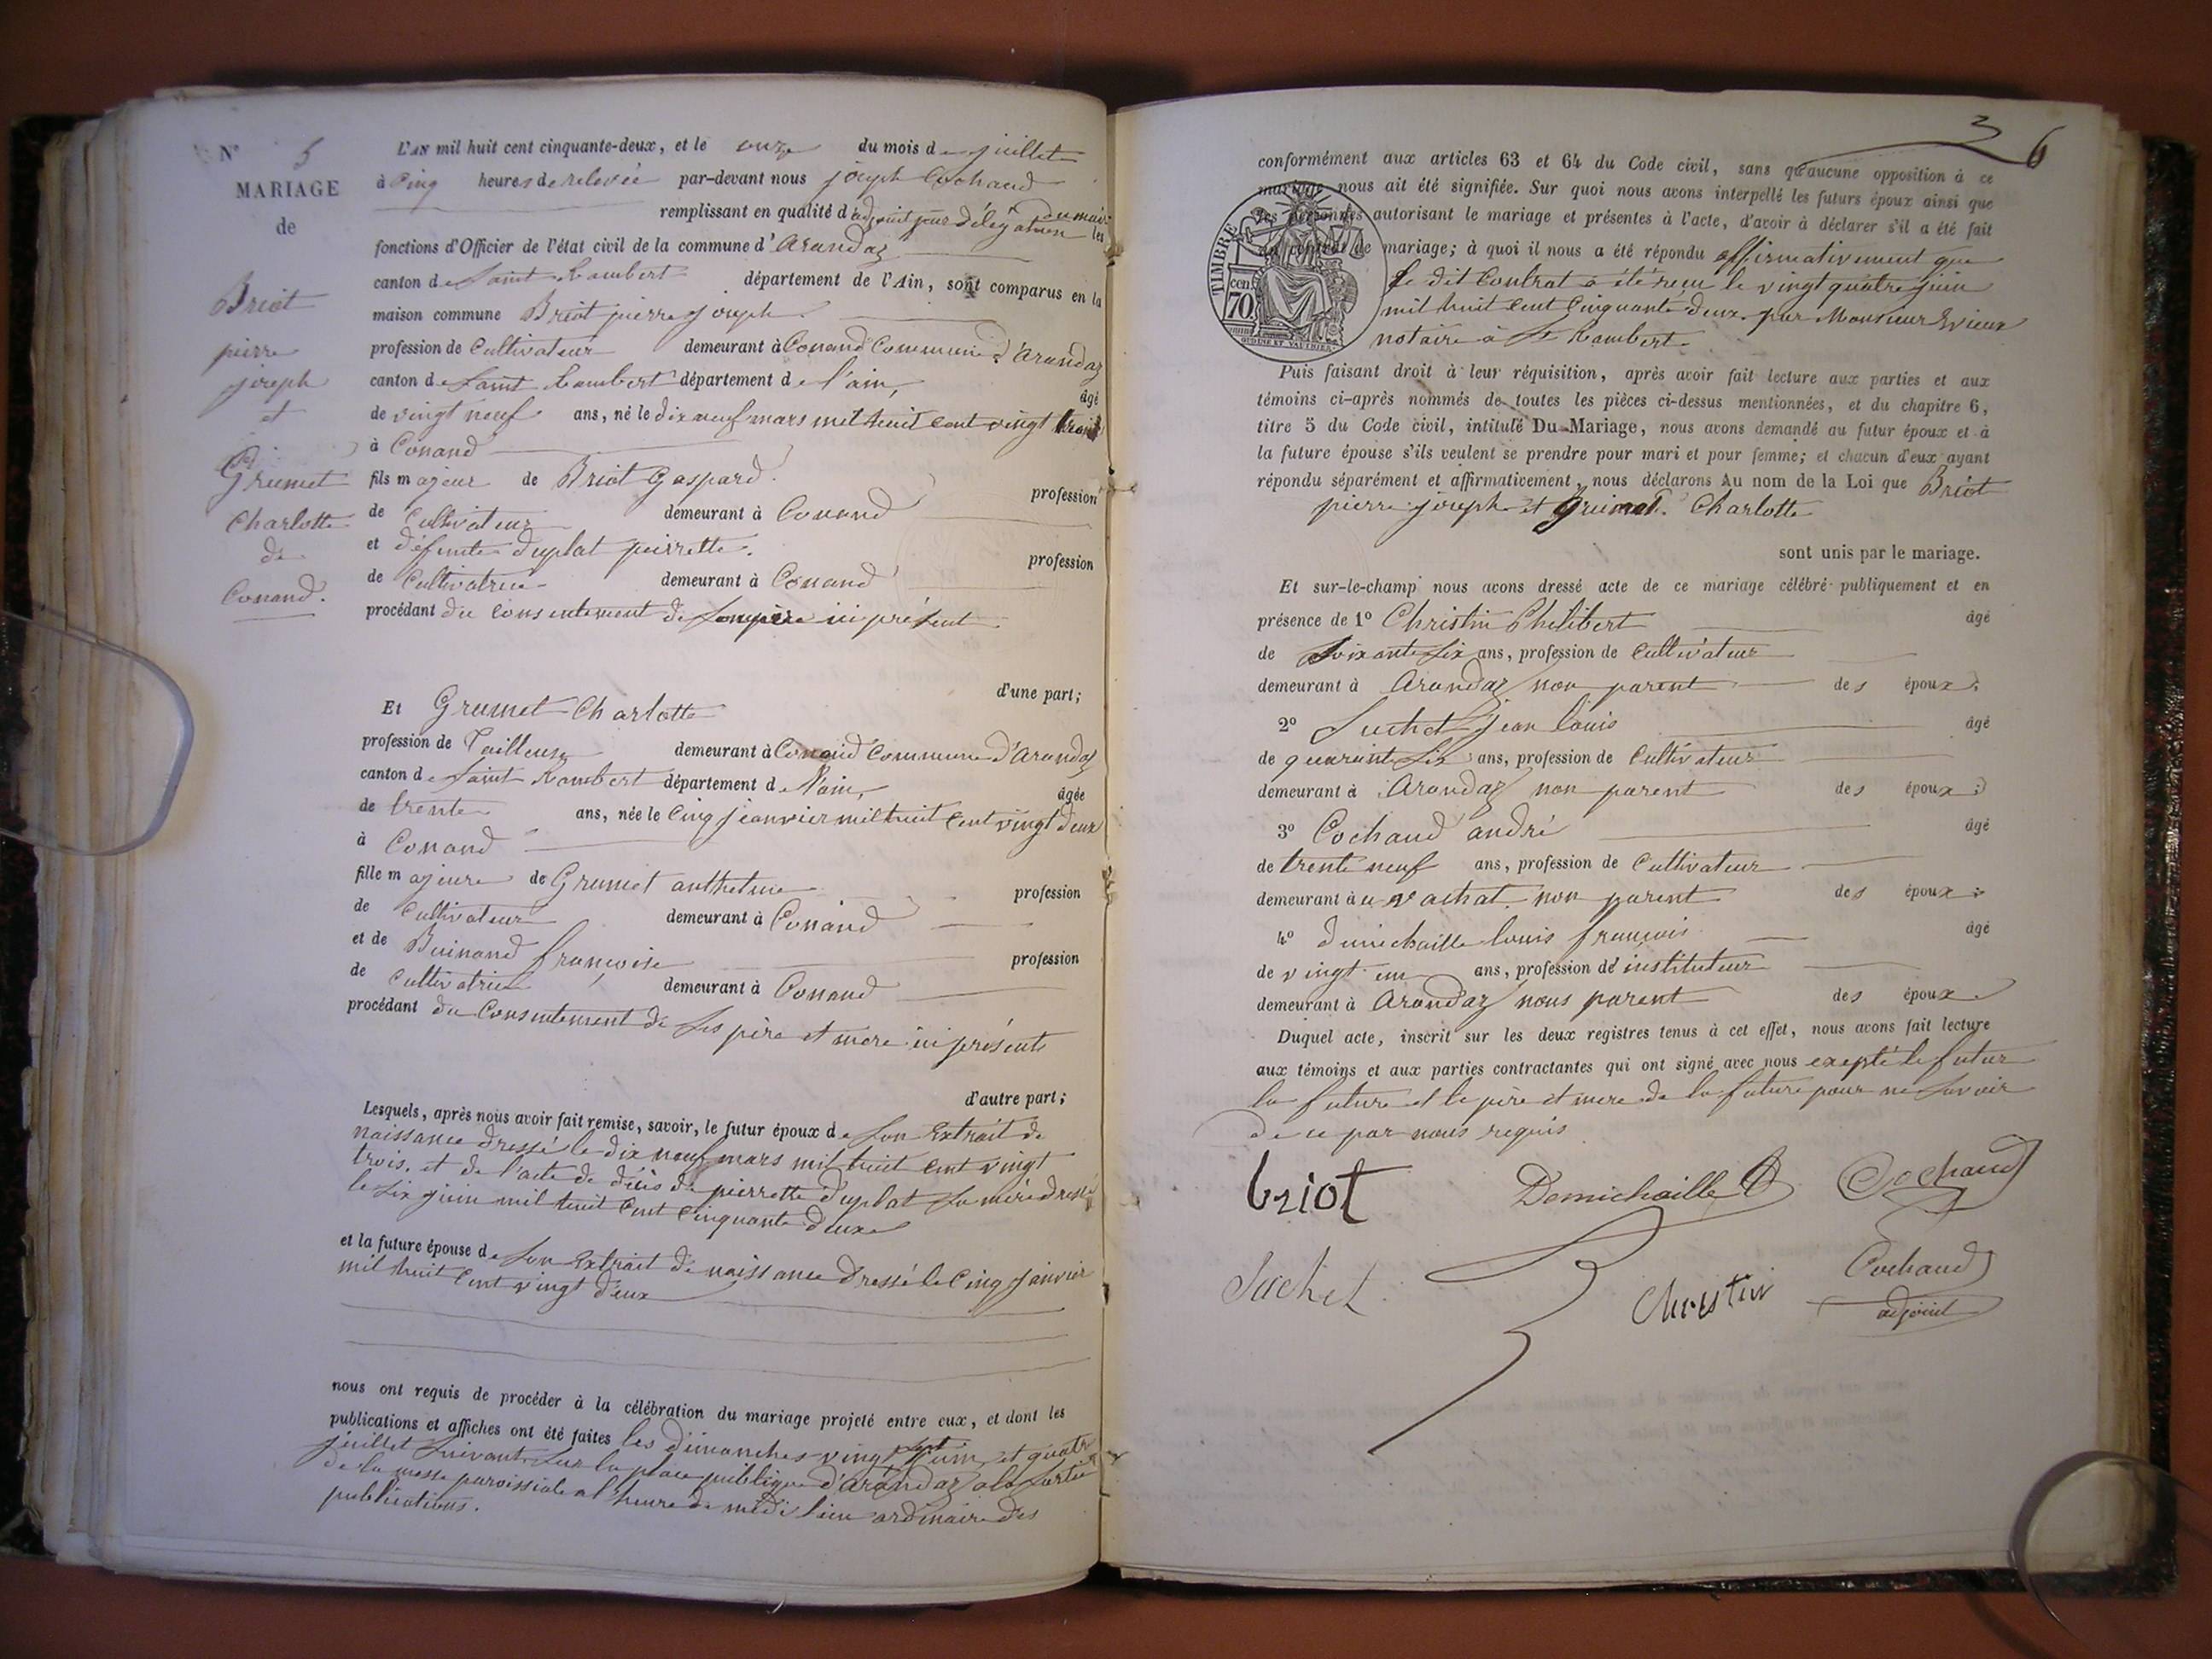 N° 5
MARIAGE
de
Briot
pierre
joseph
et
Grumet
Charlotte
de
Conand.
L'AN mil huit cent cinquante-deux, et le onze du mois de juillet
à cinq heures de relevée par-devant nous joseph Cochaud
remplissant en qualité d'adjoint par délégation du maire les
fonctions d'Officier de l'état civil de la commune d'Arandaz
canton de Saint Rambert département de l'Ain, sont comparus en la
maison commune Briot pierre joseph.
profession de Cultivateur demeurant à Conand Commune d'Arandaz
canton de Saint Rambert département de l'ain, âgé
de vingt neuf ans, né le dix neuf mars mil huit cent vingt trois
à Conand
fils majeur de Briot Gaspard. profession
de Cultivateur demeurant à Conand
et défunte duplat pierrette. profession
de Cultivatrice demeurant à Conand
procédant du consentement de son père ici présent.
d'une part;
Et Grumet Charlotte
profession de Tailleuse demeurant à Conand Commune d'Arandaz
canton de Saint Rambert département de l'ain, âgée
de trente ans, née le cinq janvier mil huit cent vingt deux
à Conand
fille majeure de Grumet anthelme profession
de Cultivateur demeurant à Conand
et de Buinand françoise profession
de Cultivatrice demeurant à Conand
procédant du Consentement de ses père et mère ici présents
d'autre part;
Lesquels, après nous avoir fait remise, savoir, le futur époux de son Extrait de
naissance dressé le dix neuf mars mil huit cent vingt
trois, et de l'acte de décès de pierrette duplat sa mère dressé
le six juin mil huit cent cinquante deux
et la future épouse de son Extrait de naissance dressé le cinq janvier
mil huit cent vingt deux
nous ont requis de procéder à la célébration du mariage projeté entre eux, et dont les
publications et affiches ont été faites les dimanches vingt sept juin et quatre
juillet suivant sur la place publique d'Arandaz à la sortie
de la messe paroissiale a l'heure de midi lieu ordinaire des
publications.
3 6
conformément aux articles 63 et 64 du Code civil, sans qu'aucune opposition à ce
mariage nous ait été signifiée. Sur quoi nous avons interpellé les futurs époux ainsi que
les personnes autorisant le mariage et présentes à l'acte, d'avoir à déclarer s'il a été fait
un contrat de mariage; à quoi il nous a été répondu affirmativement que
le dit Contrat a été reçu le vingt quatre juin
mil huit cent cinquante deux par Monsieur Evieux
notaire à St Rambert.
TIMBRE
cen
70
OUDINÉ ET VAUTHIER
Puis faisant droit à leur réquisition, après avoir fait lecture aux parties et aux
témoins ci-après nommés de toutes les pièces ci-dessus mentionnées, et du chapitre 6,
titre 5 du Code civil, intitulé Du Mariage, nous avons demandé au futur époux et à
la future épouse s'ils veulent se prendre pour mari et pour femme; et chacun d'eux ayant
répondu séparément et affirmativement, nous déclarons Au nom de la Loi que Briot
pierre joseph et Grumet Charlotte
sont unis par le mariage.
Et sur-le-champ nous avons dressé acte de ce mariage célébré publiquement et en
présence de 1° Christin Philibert âgé
de soixante six ans, profession de Cultivateur
demeurant à Arandaz non parent des époux;
2° Suchet jean louis âgé
de quarante six ans, profession de Cultivateur
demeurant à Arandaz non parent des époux;
3° Cochaud andré âgé
de trente neuf ans, profession de Cultivateur
demeurant à u vachat non parent des époux;
4° demichaille louis françois âgé
de vingt un ans, profession de instituteur
demeurant à Arandaz nous parent des époux.
Duquel acte, inscrit sur les deux registres tenus à cet effet, nous avons fait lecture
aux témoins et aux parties contractantes qui ont signé avec nous excepté le futur
la future et le père et mere de la future pour ne savoir
de ce par nous requis
briot Demichaille Cochaud
Suchet Christin Cochaud
adjoint